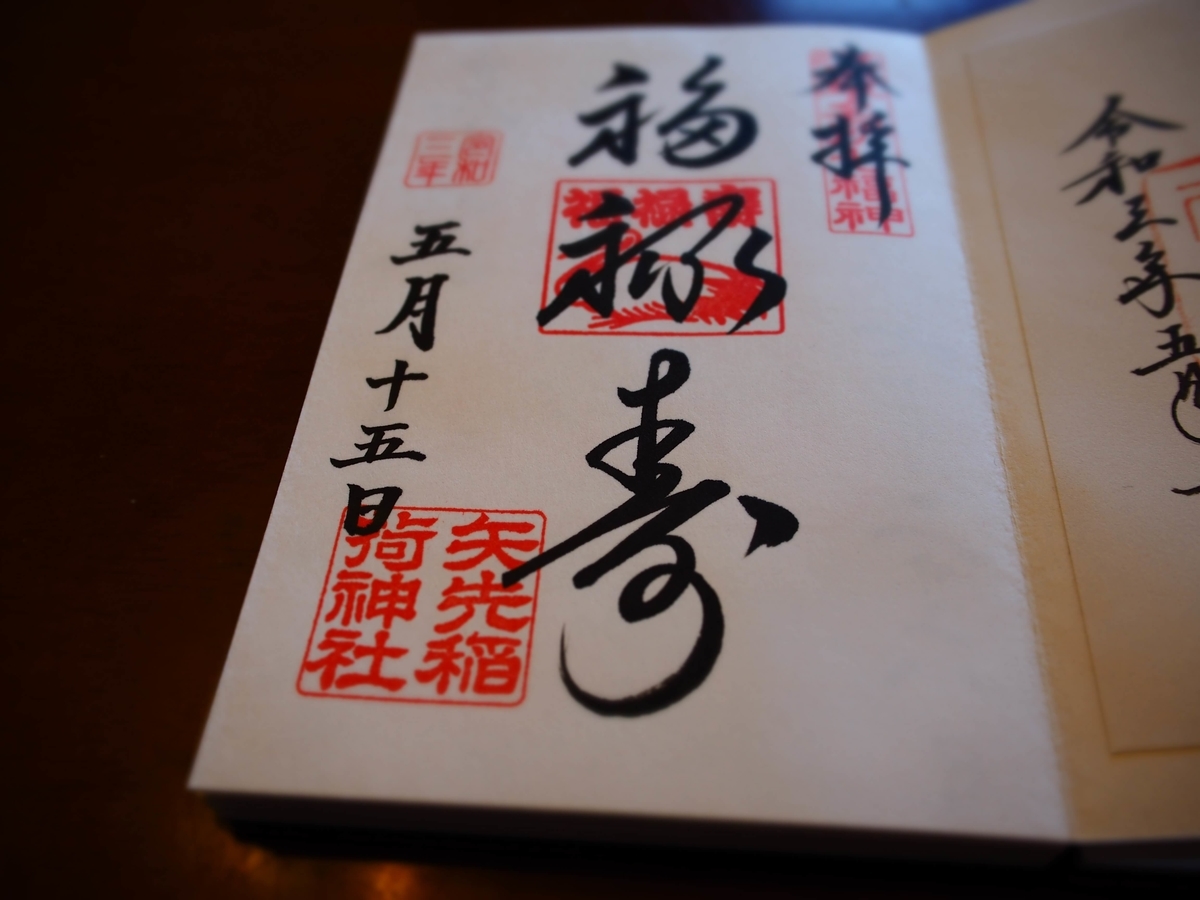 令和三年五月
奉拝
福禄寿
令和三年
五月十五日
矢先稲
荷神社